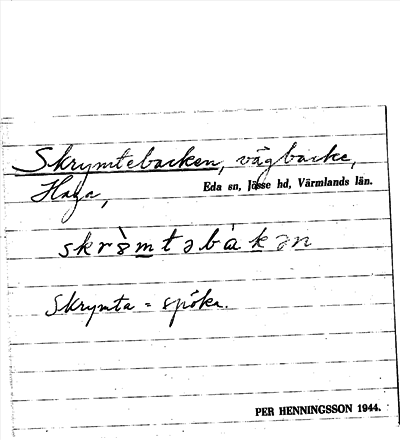 Skrymtebacken, vägbacke,
Haga,
Eda sn, Jösse hd, Värmlands län.
skrɞ̀mtəbàkən
Skrymta = spöka.
PER HENNINGSSON 1944.